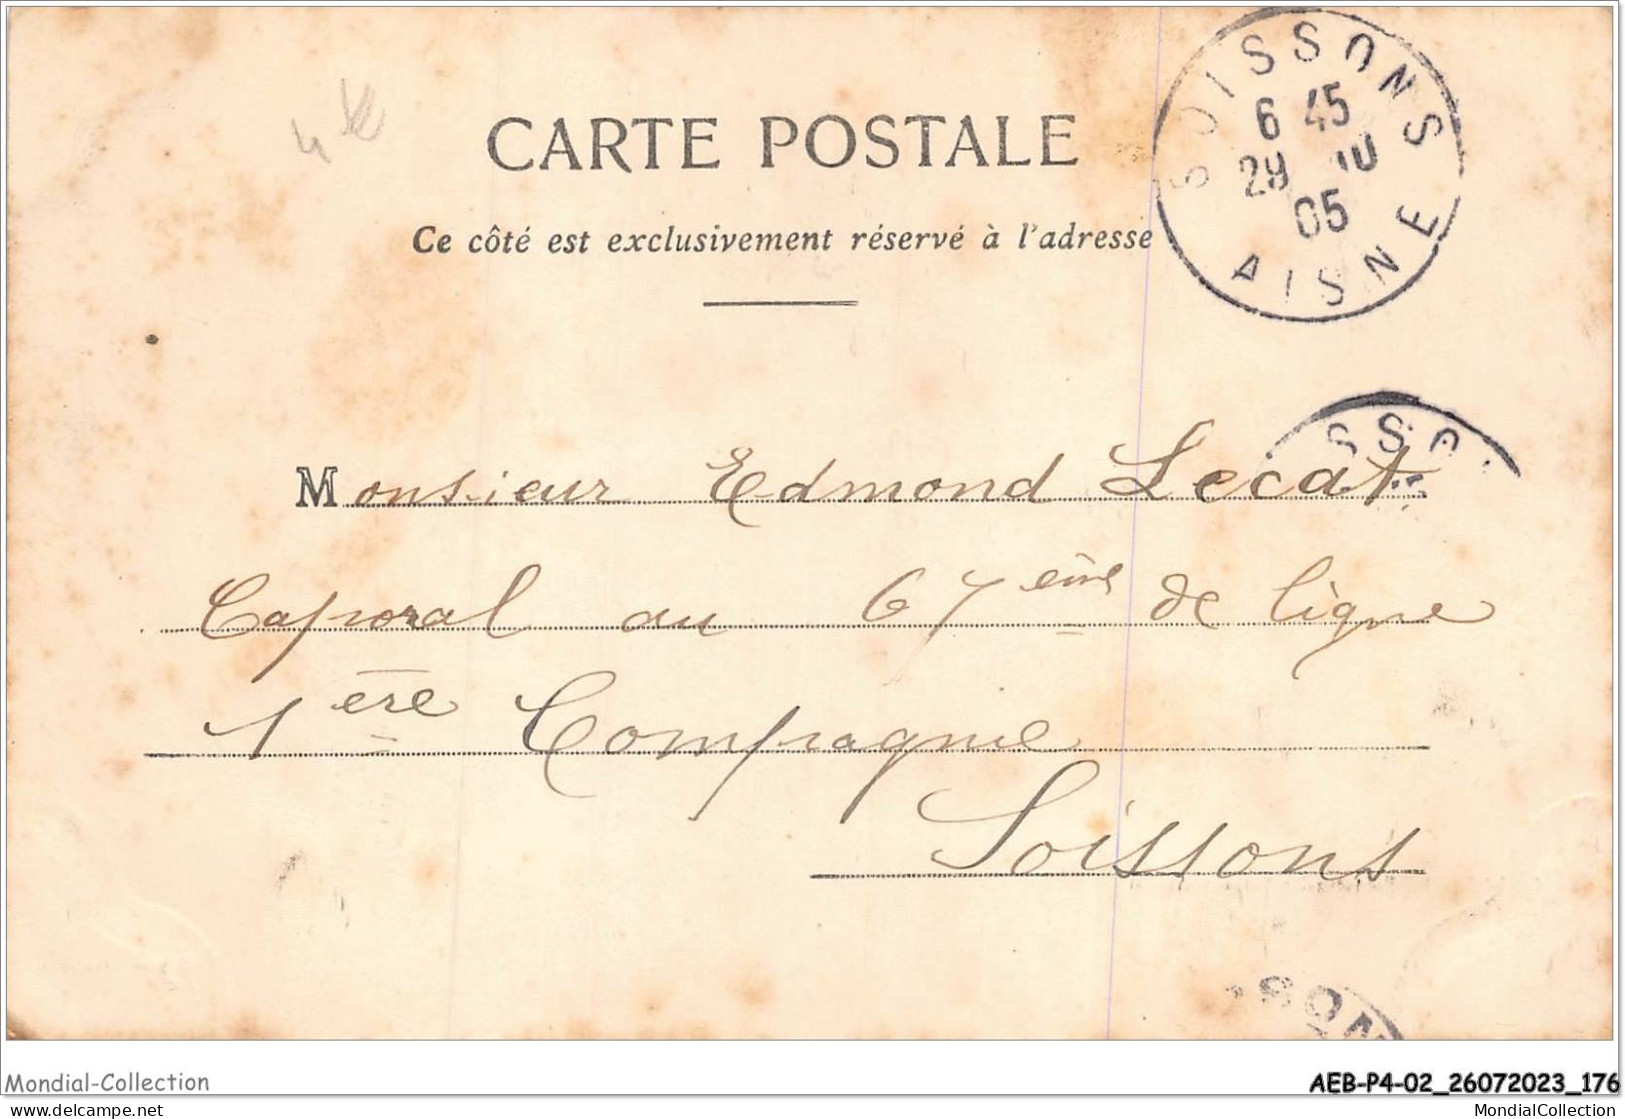 4 k
CARTE POSTALE
Ce côté est exclusivement réservé à l'adresse
SOISSONS
6 45
29 10
05
AISNE
SSO
Monsieur Edmond Lecat
Caporal au 67ème de ligne
1ère Compagnie
Soissons
SON
Mondial-Collection
AEB-P4-02_26072023_176
www.delcampe.net
MondialCollection